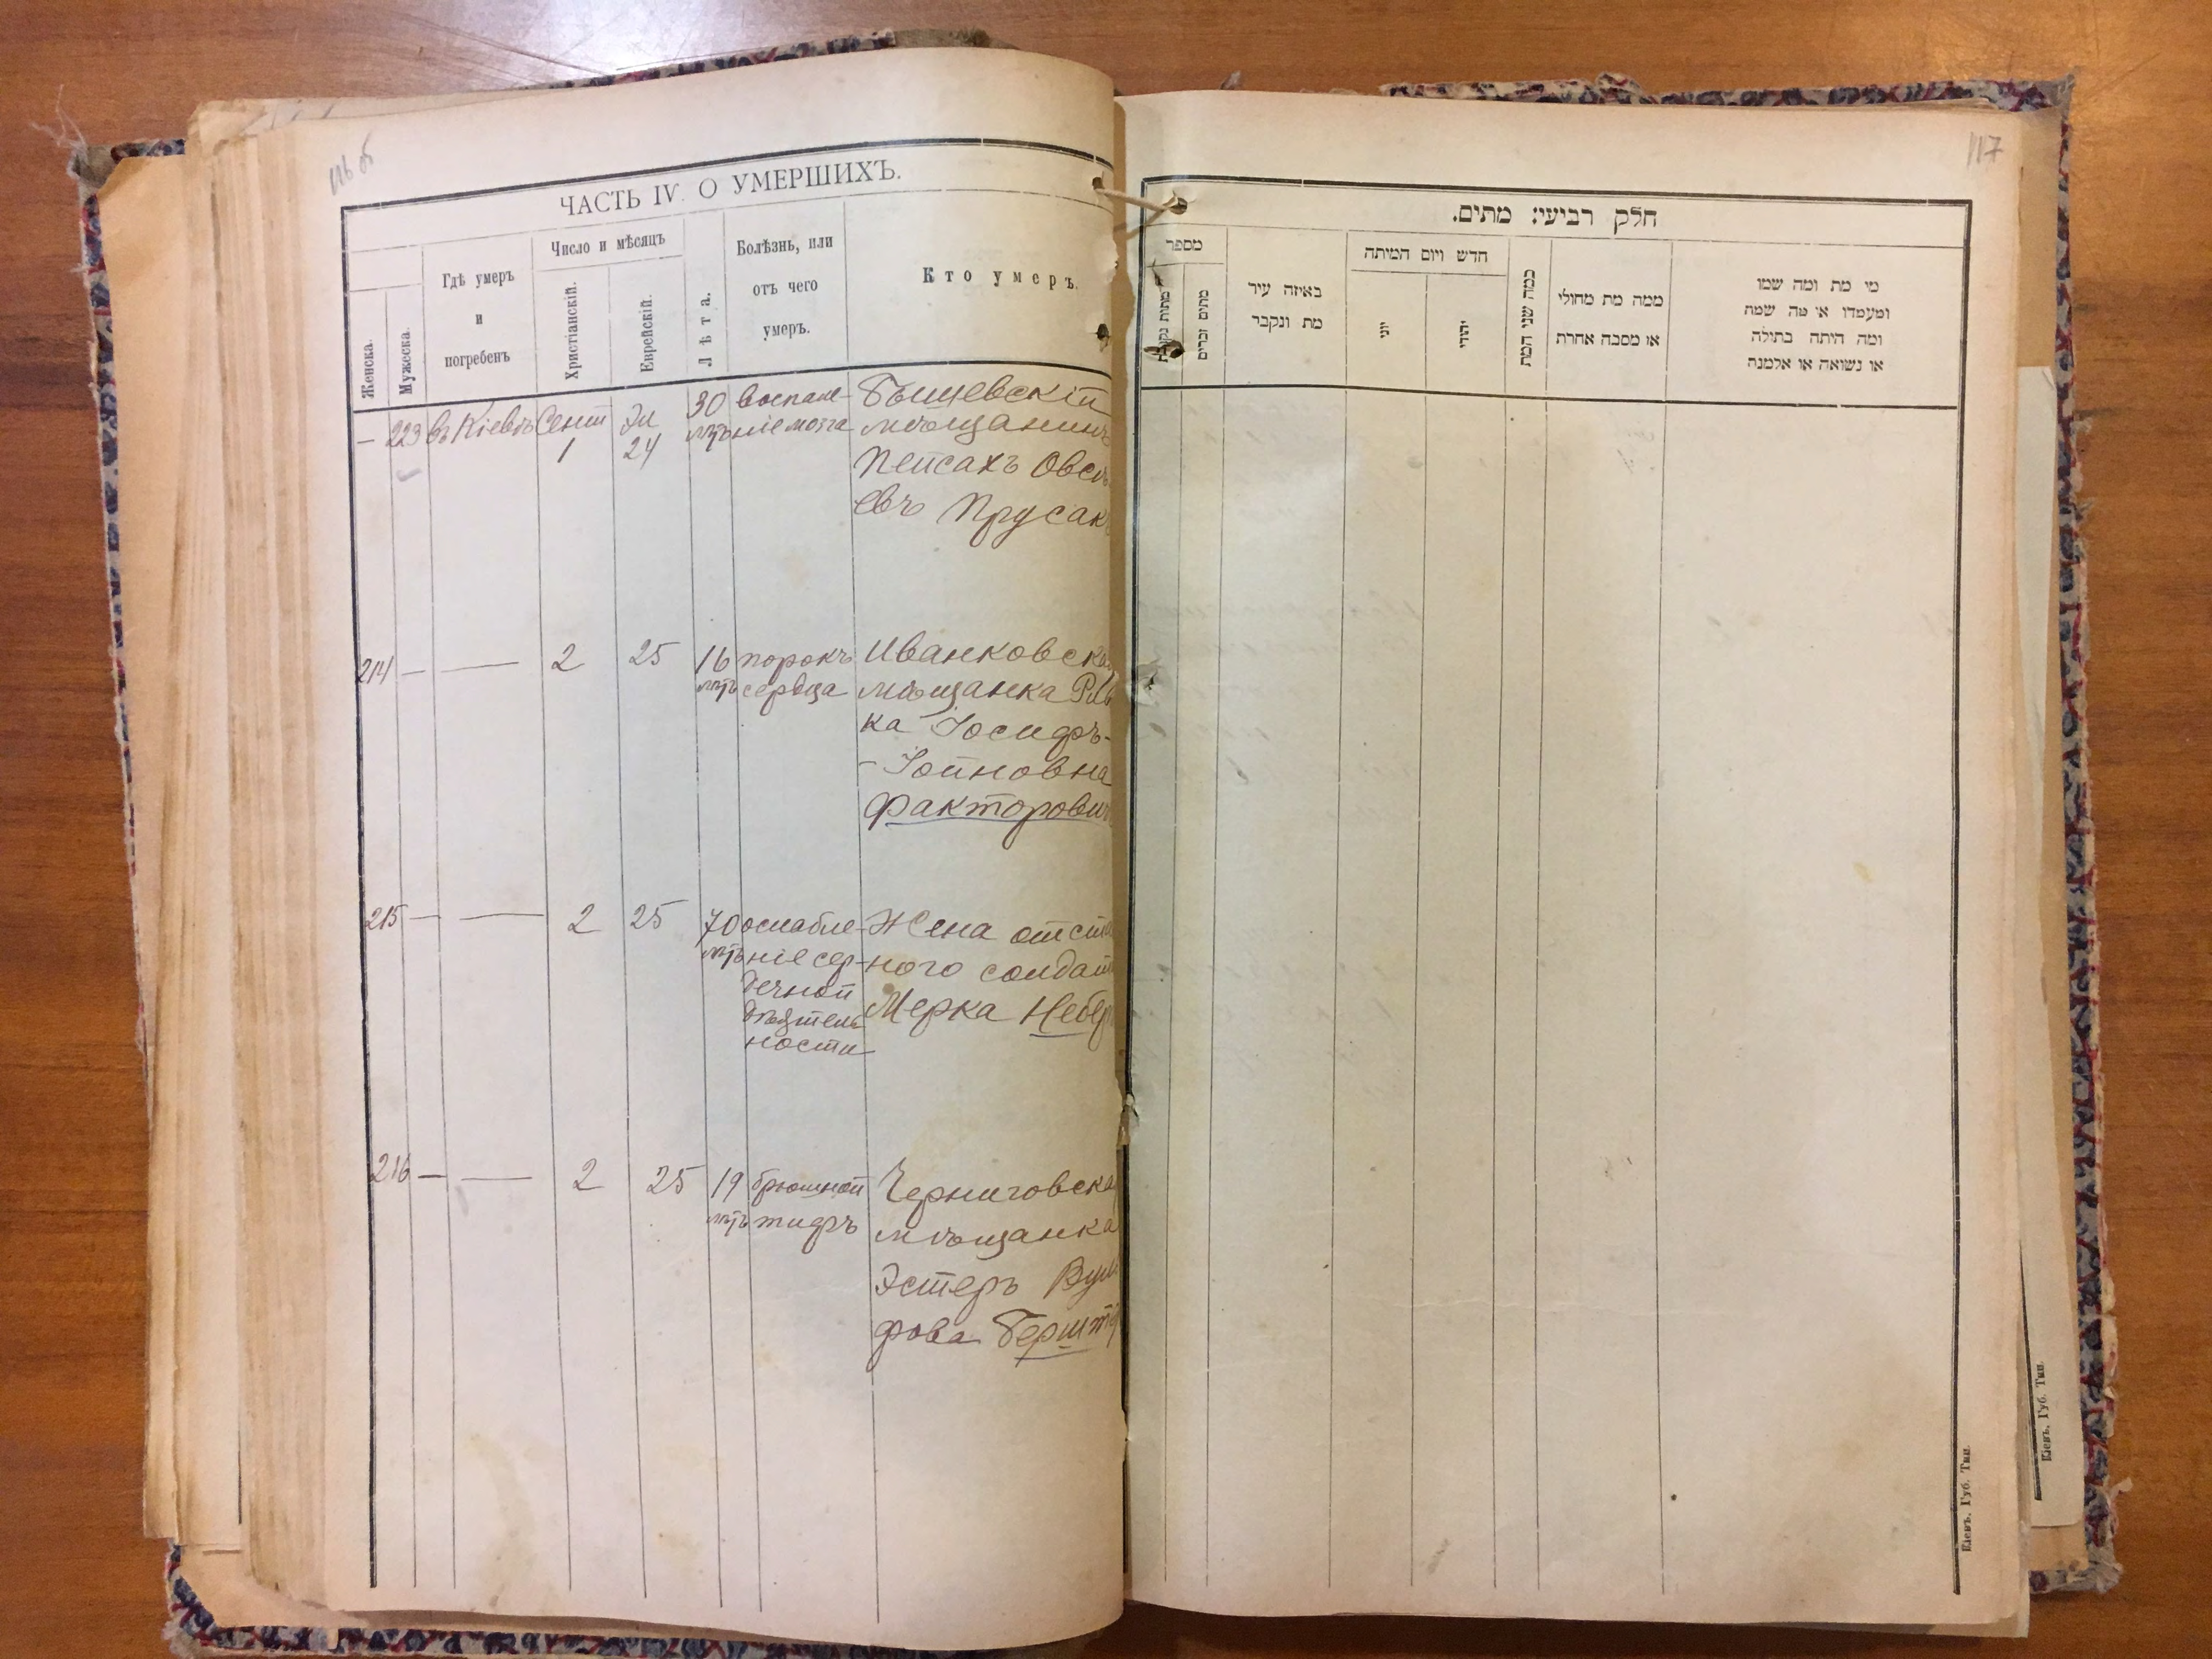 116 б
ЧАСТЬ IV. О УМЕРШИХЪ.
Женска.
Мужеска.
Гдѣ умеръ
и
погребенъ
Число и мѣсяцъ
Христіанскій.
Еврейскій.
Лѣта.
Болѣзнь, или
отъ чего
умеръ.
Кто умеръ.
— 223 въ Кіевѣ Сент 1 Эл 24 30 лѣтъ воспале-
ніе мозга
Бышевскій
мѣщанинъ
Пейсахъ Овсѣ
евъ Прусакъ
214 — — 2 25 16 лѣтъ порокъ
сердца
Иванковская
мѣщанка Рив
ка Іосифъ-
-Іойновна
Факторович
215 — — 2 25 70 лѣтъ ослабле-
ніе сер-
дечной
дѣятель
ности
Жена отста
ного солдат
Мерка
216 — — 2 25 19 лѣтъ брюшной
тифъ
Черниговска
мѣщанка
Эстеръ Вуль
фова
117
חלק רביעי: מתים.
מספר
מתות נקבות
מתים זכרים
באיזה עיר
מת ונקבר
חדש ויום המיתה
יוני
יהודי
כמה שני המת
ממה מת מחולי
או מסבה אחרת
מי מת ומה שמו
ומעמדו או מה שמה
ומה היתה בתולה
או נשואה או אלמנה
Кіевъ, Губ. Тип.
Кіевъ, Губ. Тип.